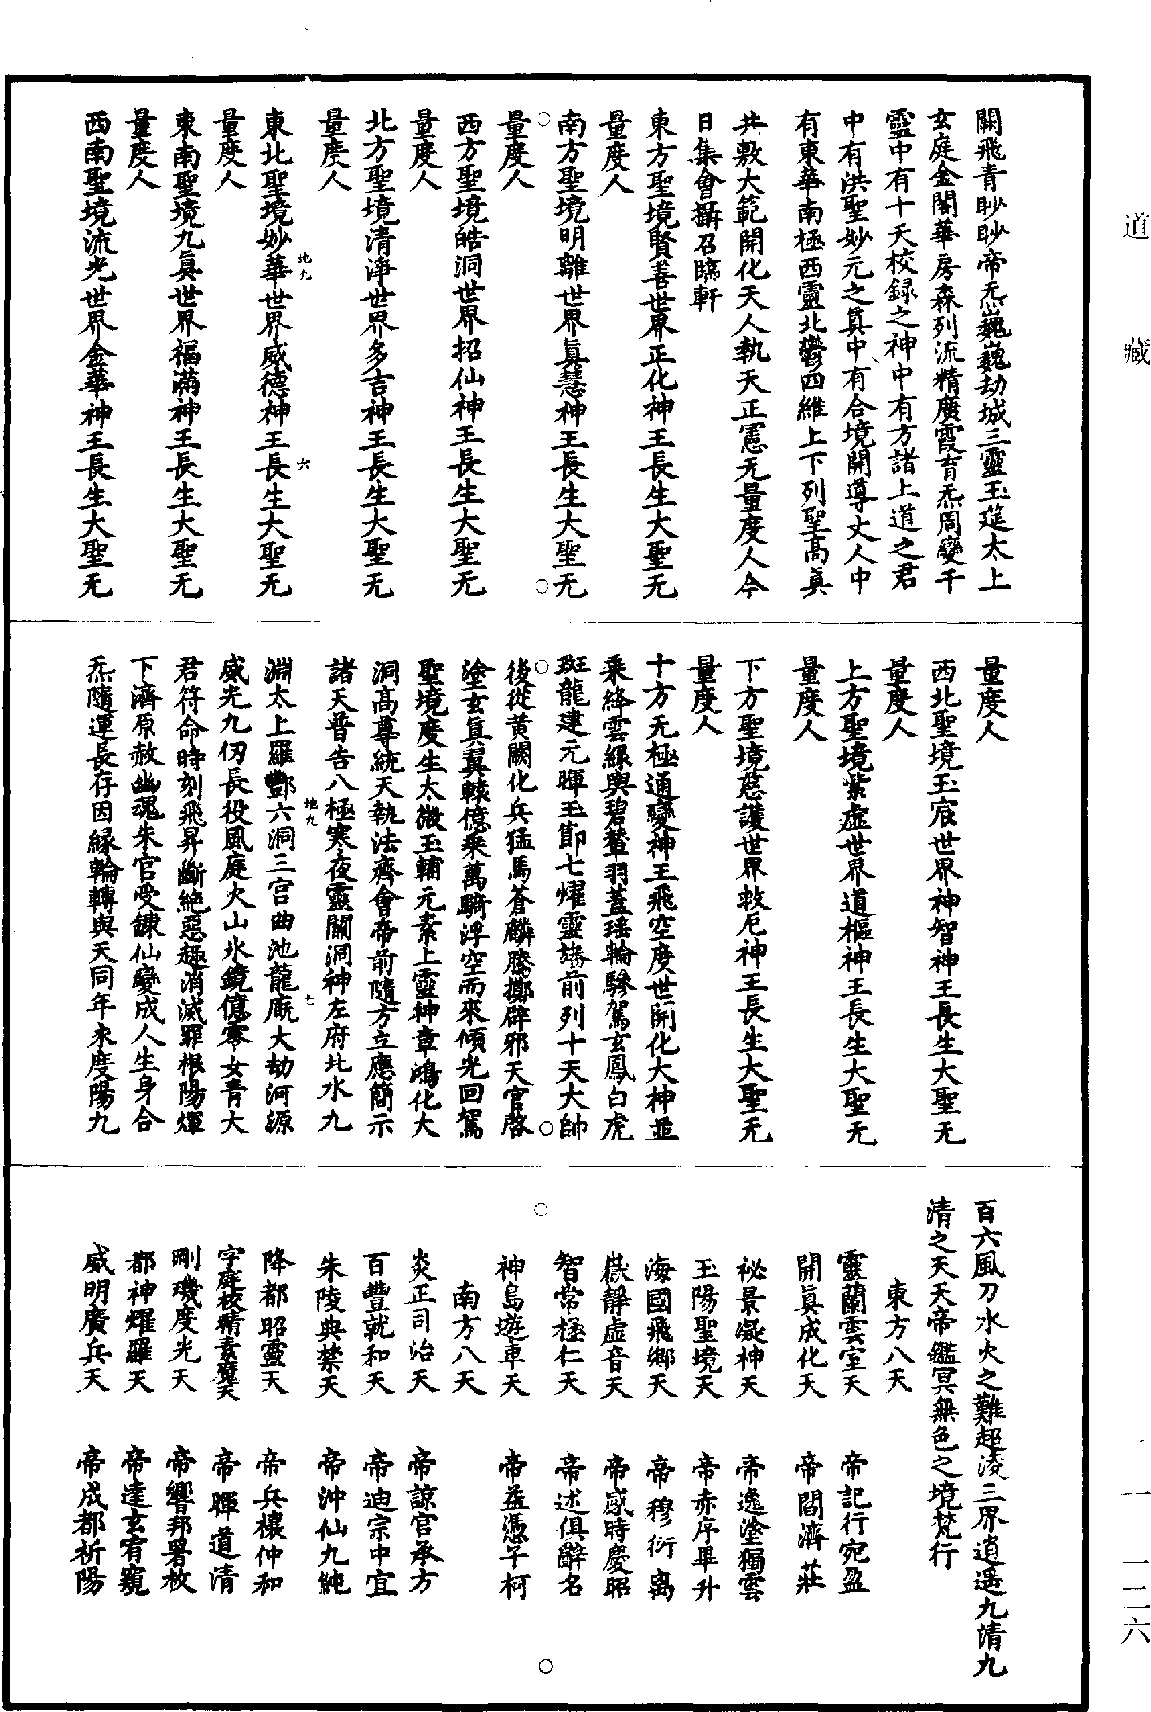 道藏
關飛青眇眇帝炁巍巍劫城三靈玉筵太上
玄庭金閣華房森列流精廣霞育炁周變千
靈中有十天校録之神中有方諸上道之君
中有洪聖妙元之真中有合境開導丈人中
有東華南極西靈北鬱四維上下列聖高真
共敷大範開化天人執天正憲无量度人今
日集會攝召臨軒
東方聖境賢善世界正化神王長生大聖无
量度人
南方聖境明離世界真慧神王長生大聖无
量度人
西方聖境皓洞世界招仙神王長生大聖无
量度人
北方聖境清淨世界多吉神王長生大聖无
量度人
東北聖境妙華世界威德神王長生大聖无
地九
六
量度人
東南聖境九真世界福滿神王長生大聖无
量度人
西南聖境流光世界金華神王長生大聖无
量度人
西北聖境玉宸世界神智神王長生大聖无
量度人
上方聖境紫虛世界道樞神王長生大聖无
量度人
下方聖境慈護世界救厄神王長生大聖无
量度人
十方无極通變神王飛空度世開化大神並
乘絳雲綠輿碧輦羽蓋瑤輪驂駕玄鳳白虎
斑龍建元暉玉節七燿靈旛前列十天大帥
後從黃闕化兵猛馬蒼麟騰擲辟邪天官啓
塗玄真翼轅億乘萬騎浮空而來傾光回駕
聖境度生太微玉輔元素上靈神章鴻化大
洞高尊統天執法齊會帝前隨方立應簡示
諸天普告八極寒夜靈關洞神左府北水九
地九
七
淵太上羅酆六洞三官曲池龍廐大劫河源
威光九仞長投風庭火山氷鏡億零女青大
君符命時刻飛昇斷絕惡趣消滅罪根陽煇
下濟原赦幽魂朱官受鍊仙變成人生身合
炁隨運長存因緣輪轉與天同年永度陽九
百六風刀水火之難超凌三界逍遥九清九
清之天天帝鑑冥無色之境梵行
東方八天
靈蘭雲室天　帝記行宛盈
開真成化天　帝閻濟莊
祕景凝神天　帝逸塗獨雲
玉陽聖境天　帝赤序畢升
海國飛鄉天　帝穆衍离
嶽靜虛音天　帝感時慶昭
智常極仁天　帝述俱辭名
神島遊車天　帝益憑子柯
南方八天
炎正司治天　帝諒官承方
百豐就和天　帝迪宗中宜
朱陵典禁天　帝沖仙九純
降都昭靈天　帝兵禳仲和
字庭校精玄魔天　帝暉道清
剛璣度光天　帝響邦署枚
都神燿羅天　帝達玄宥窺
威明廣兵天　帝成都祈陽
一　一二六